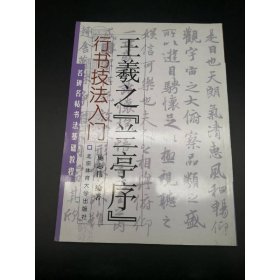 是日也天朗氣清惠風和暢仰
觀宇宙之大俯察品類之盛
所以遊目騁懷足以極視聽之
王羲之『兰亭序』
行书技法入门
编著
北京体育大学出版社
名碑名帖书法基础教程